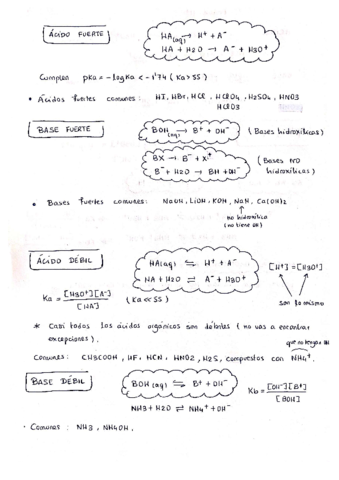 ÁCIDO FUERTE
HA(aq) → H⁺ + A⁻
HA + H2O → A⁻ + H3O⁺
Cumplen pKa = -logKa < -1'74 (Ka > 55)
• Ácidos fuertes comunes: HI, HBr, HCl, HClO4, H2SO4, HNO3
HClO3
BASE FUERTE
BOH(aq) → B⁺ + OH⁻ (Bases hidroxílicas)
BX → B⁻ + X⁺ (Bases NO hidroxílicas)
B⁻ + H2O → BH + OH⁻
• Bases fuertes comunes: NaOH, LiOH, KOH, NaH, Ca(OH)2
no hidroxílica
(no tiene OH)
ÁCIDO DÉBIL
HA(aq) ⇌ H⁺ + A⁻ [H⁺] = [H3O⁺]
HA + H2O ⇌ A⁻ + H3O⁺
son lo mismo
Ka = [H3O⁺][A⁻] / [HA] (Ka << 55)
* Casi todos los ácidos orgánicos son débiles (no vas a encontrar
excepciones). que no tenga OH
Comunes: CH3COOH, HF, HCN, HNO2, H2S, compuestos con NH4⁺.
BASE DÉBIL
BOH(aq) ⇌ B⁺ + OH⁻ Kb = [OH⁻][B⁺] / [BOH]
NH3 + H2O ⇌ NH4⁺ + OH⁻
· Comunes: NH3, NH4OH,